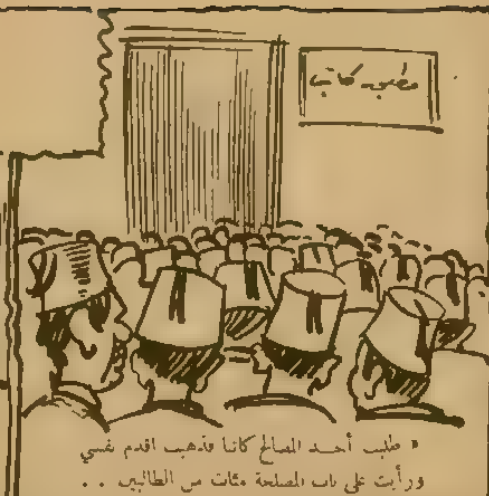 مطلوب كاتب
« طلب أحد المصالح كاتبا فذهبت اقدم نفسي
ورأيت على باب المصلحة مئات من الطالبين . .